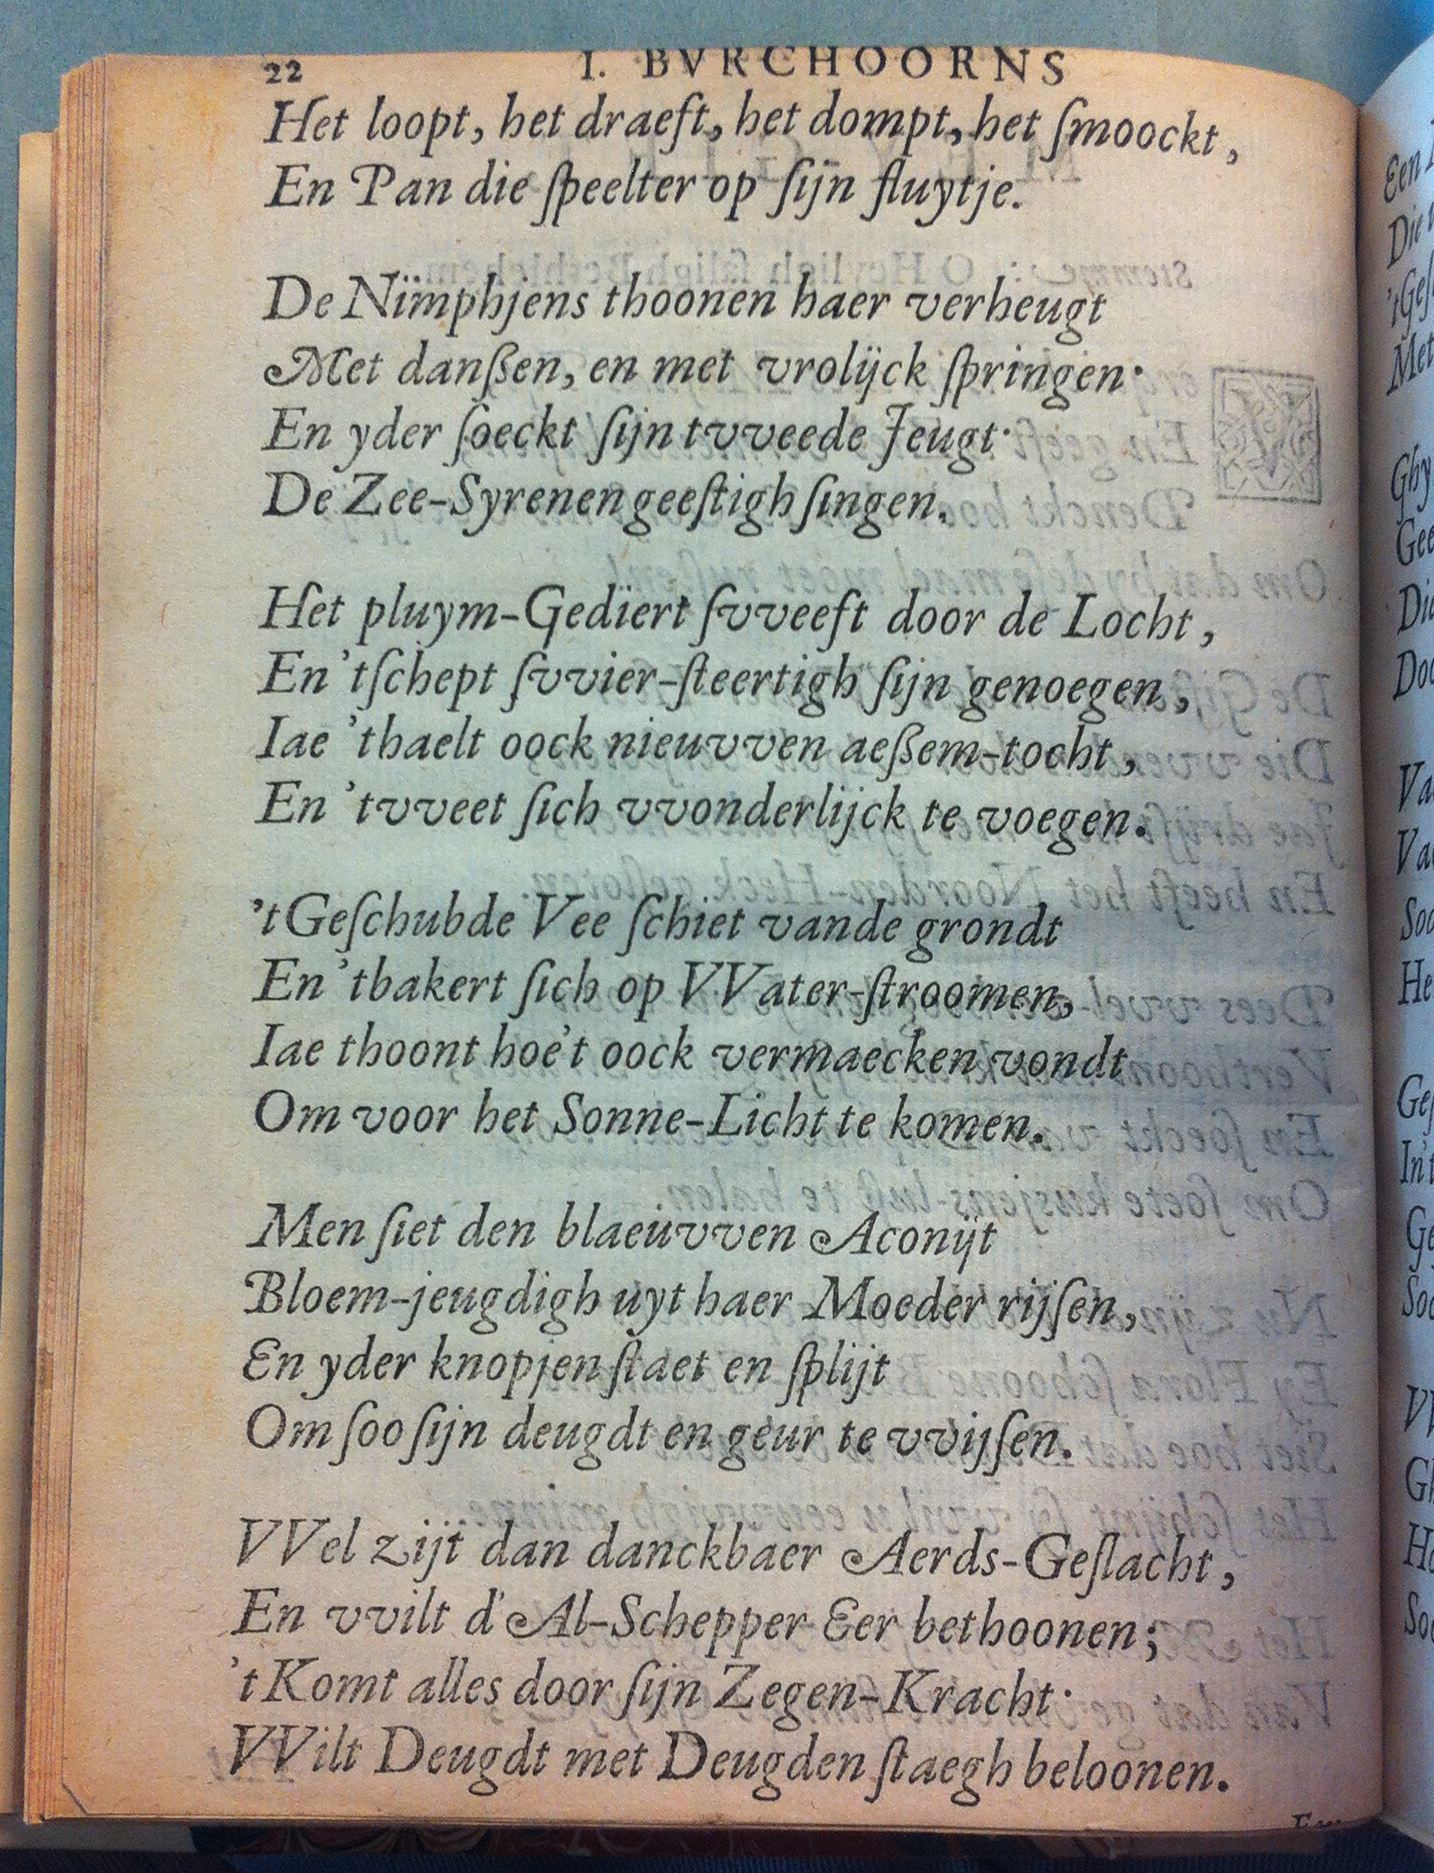 22 I. BVRCHOORNS
Het loopt, het draeft, het dompt, het ſmoockt,
En Pan die ſpeelter op ſijn fluytje.
De Nïmphjens thoonen haer verheugt
Met danßen, en met vrolijck ſpringen·
En yder ſoeckt ſijn tvveede Jeugt·
De Zee-Syrenen geeſtigh ſingen.
Het pluym-Gediert ſvveeft door de Locht,
En 'tſchept ſvvier-ſteertigh ſijn genoegen,
Iae 'thaelt oock nieuvven aeßem-tocht,
En 'tvveet ſich vvonderlijck te voegen.
't Geſchubde Vee ſchiet vande grondt
En 'tbakert ſich op VVater-ſtroomen,
Iae thoont hoe't oock vermaecken vondt
Om voor het Sonne-Licht te komen.
Men ſiet den blaeuvven Aconijt
Bloem-jeugdigh uyt haer Moeder rijſen,
En yder knopjen ſtaet en ſplijt
Om ſoo ſijn deugdt en geur te vvijſen.
VVel zijt dan danckbaer Aerds-Geſlacht,
En vvilt d'Al-Schepper Eer bethoonen;
't Komt alles door ſijn Zegen-Kracht·
VVilt Deugdt met Deugden ſtaegh beloonen.
Een
Die
'tGeſ
Met
Ghy
Gee
Die
Doo
Va
Va
Soo
He
Geſ
In't
Ge
Soo
VV
Gh
Ho
Soo